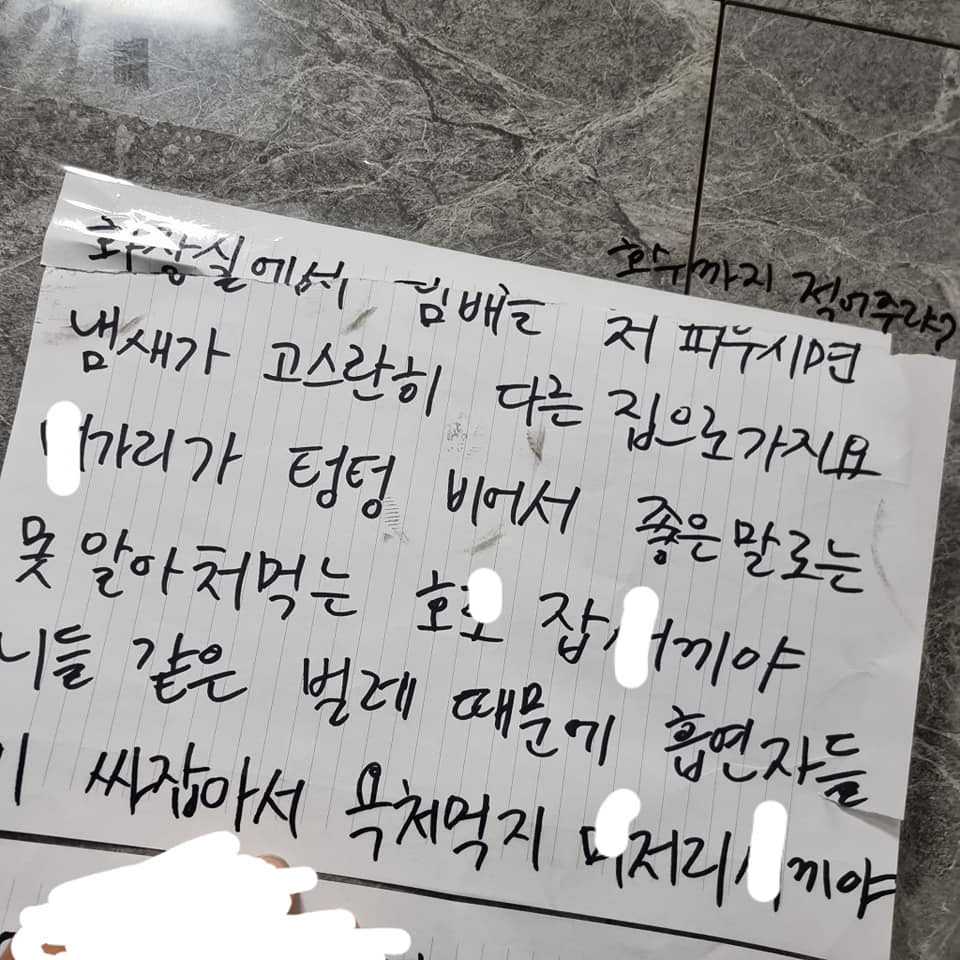 호수까지 적어주랴?
화장실에서 담배를 처 피우시면
냄새가 고스란히 다른 집으로가지요
가리가 텅텅 비어서 좋은말로는
못 알아처먹는 호로 잡 끼야
니들 같은 벌레 때문에 흡연자들
이 싸잡아서 욕처먹지 저리 끼야